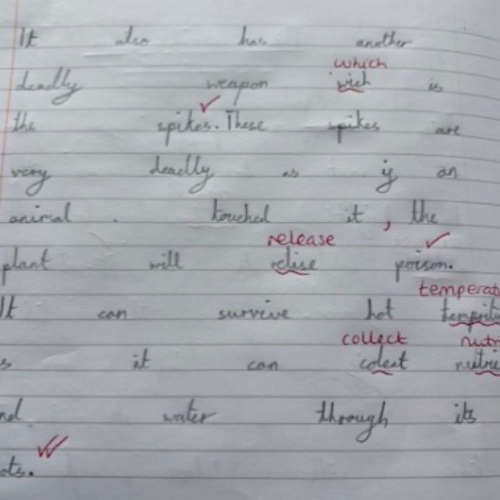 It also has another
which
deadly weapon wich is
the spikes. These spikes are
very deadly as if an
animal . touched it, the
release
plant will relise poison.
temperat
It can survive hot
collect nutr
s it can colect nutrie
nd water through its
ots.